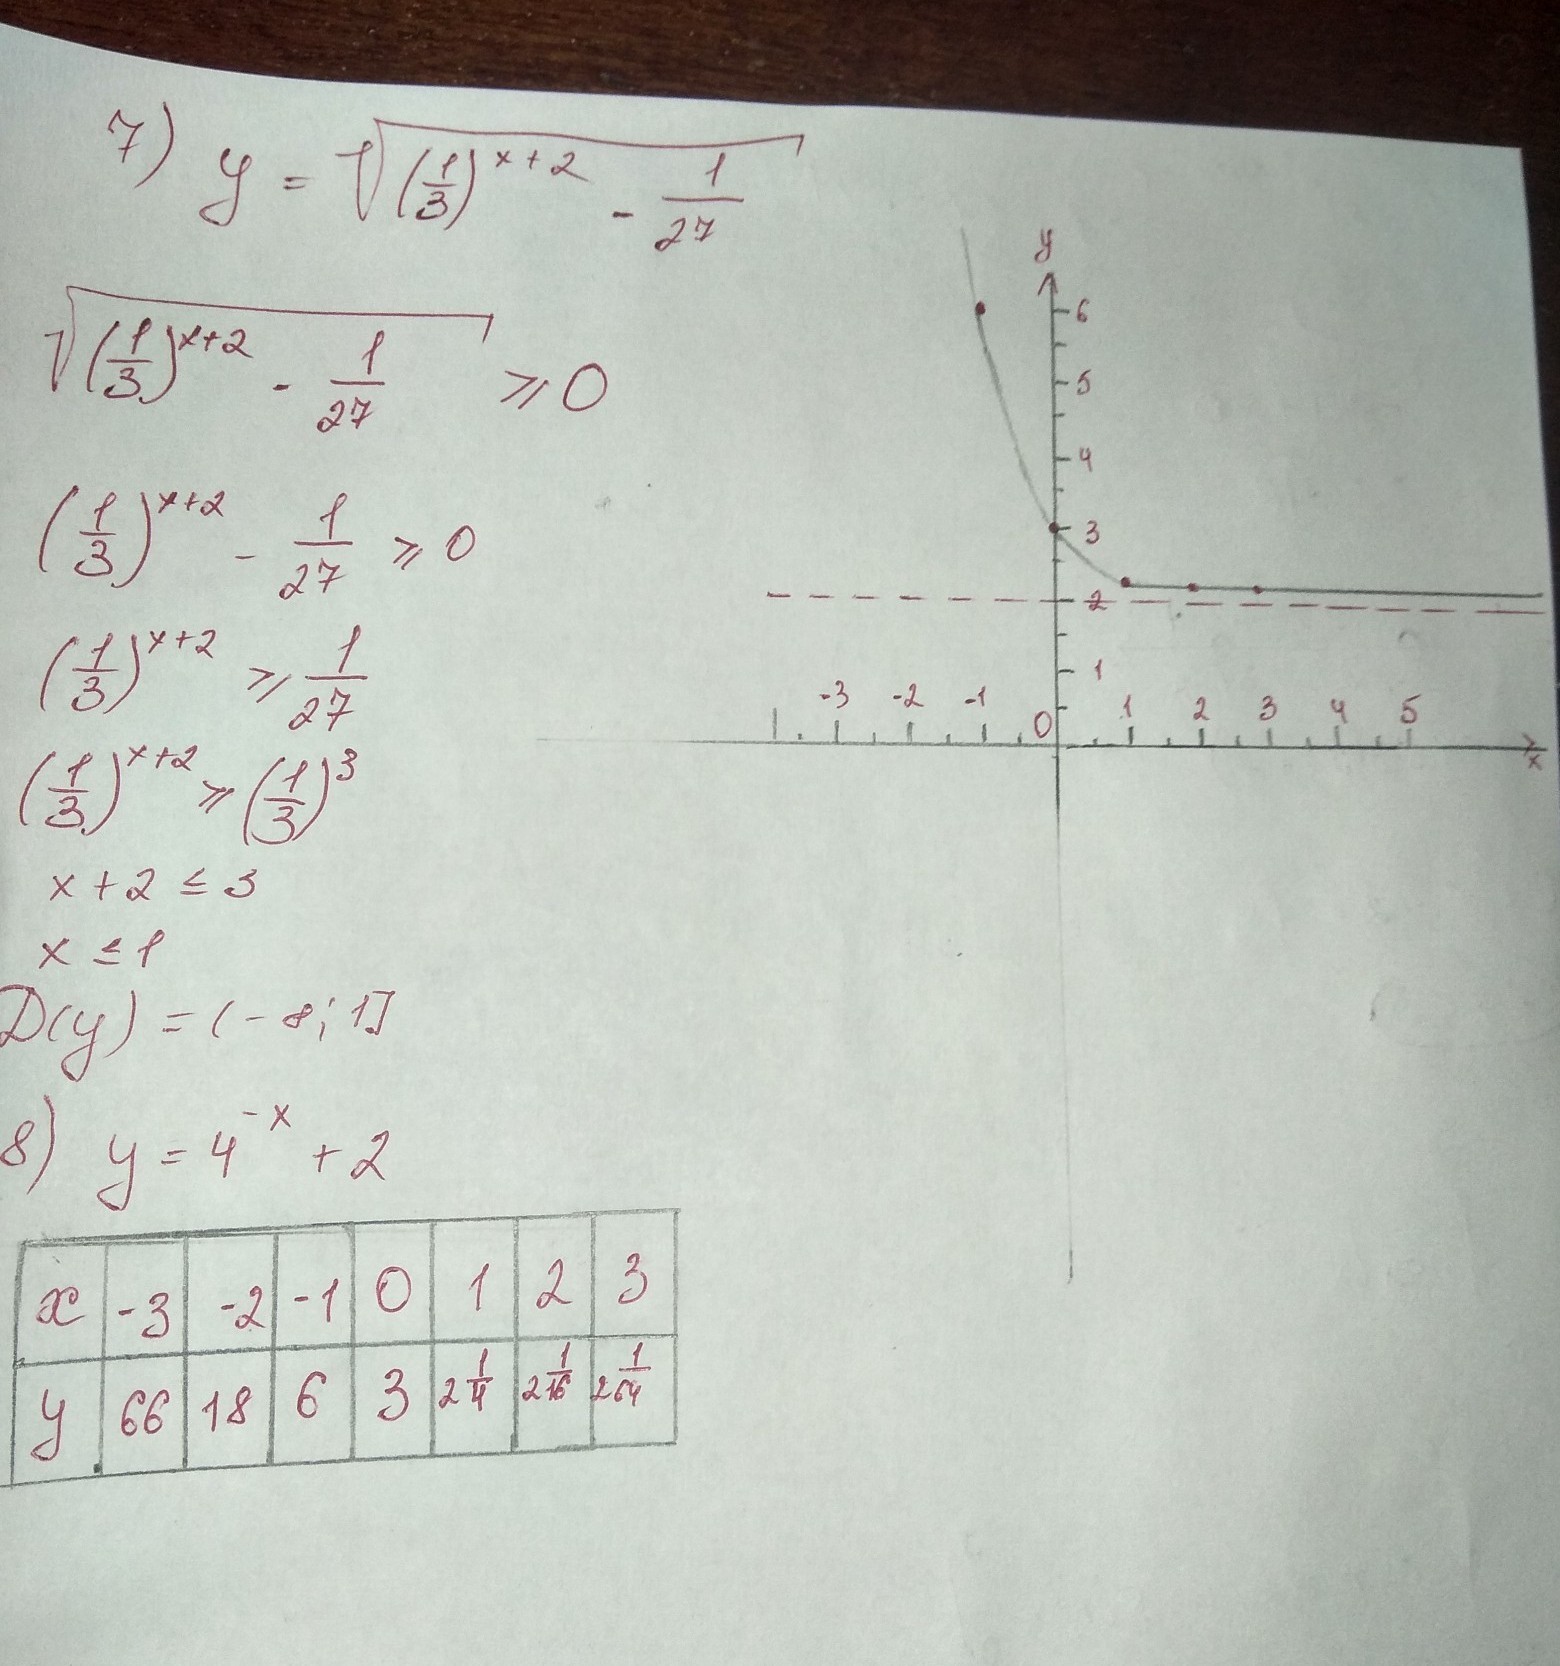 7) y = √((1/3)^(x+2) - 1/27)
√((1/3)^(x+2) - 1/27) ⩾ 0
(1/3)^(x+2) - 1/27 ⩾ 0
(1/3)^(x+2) ⩾ 1/27
(1/3)^(x+2) ⩾ (1/3)^3
x + 2 ≤ 3
x ≤ 1
D(y) = (-∞; 1]
8) y = 4^(-x) + 2
x -3 -2 -1 0 1 2 3
y 66 18 6 3 2 1/4 2 1/16 2 1/64
y
6
5
4
3
2
1
-3 -2 -1 0 1 2 3 4 5
x